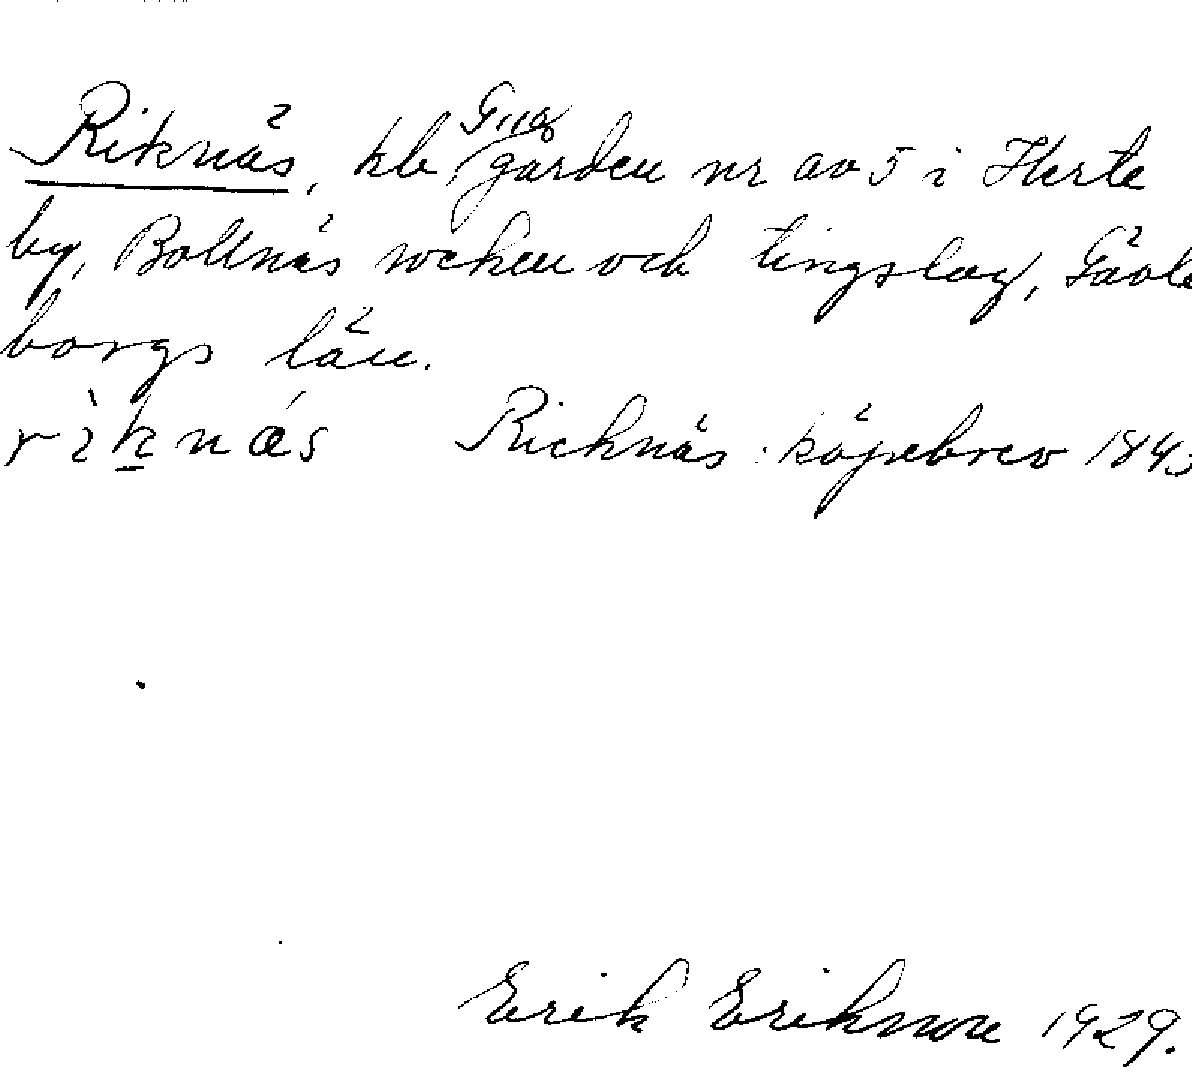 Riknäs, hb gården nr av 5 i Herte
by, Bollnäs socken och tingslag, Gävle
borgs län.
rìk̲næ´s Ricknäs: köpebrev 184
Erik Erikson 1929.